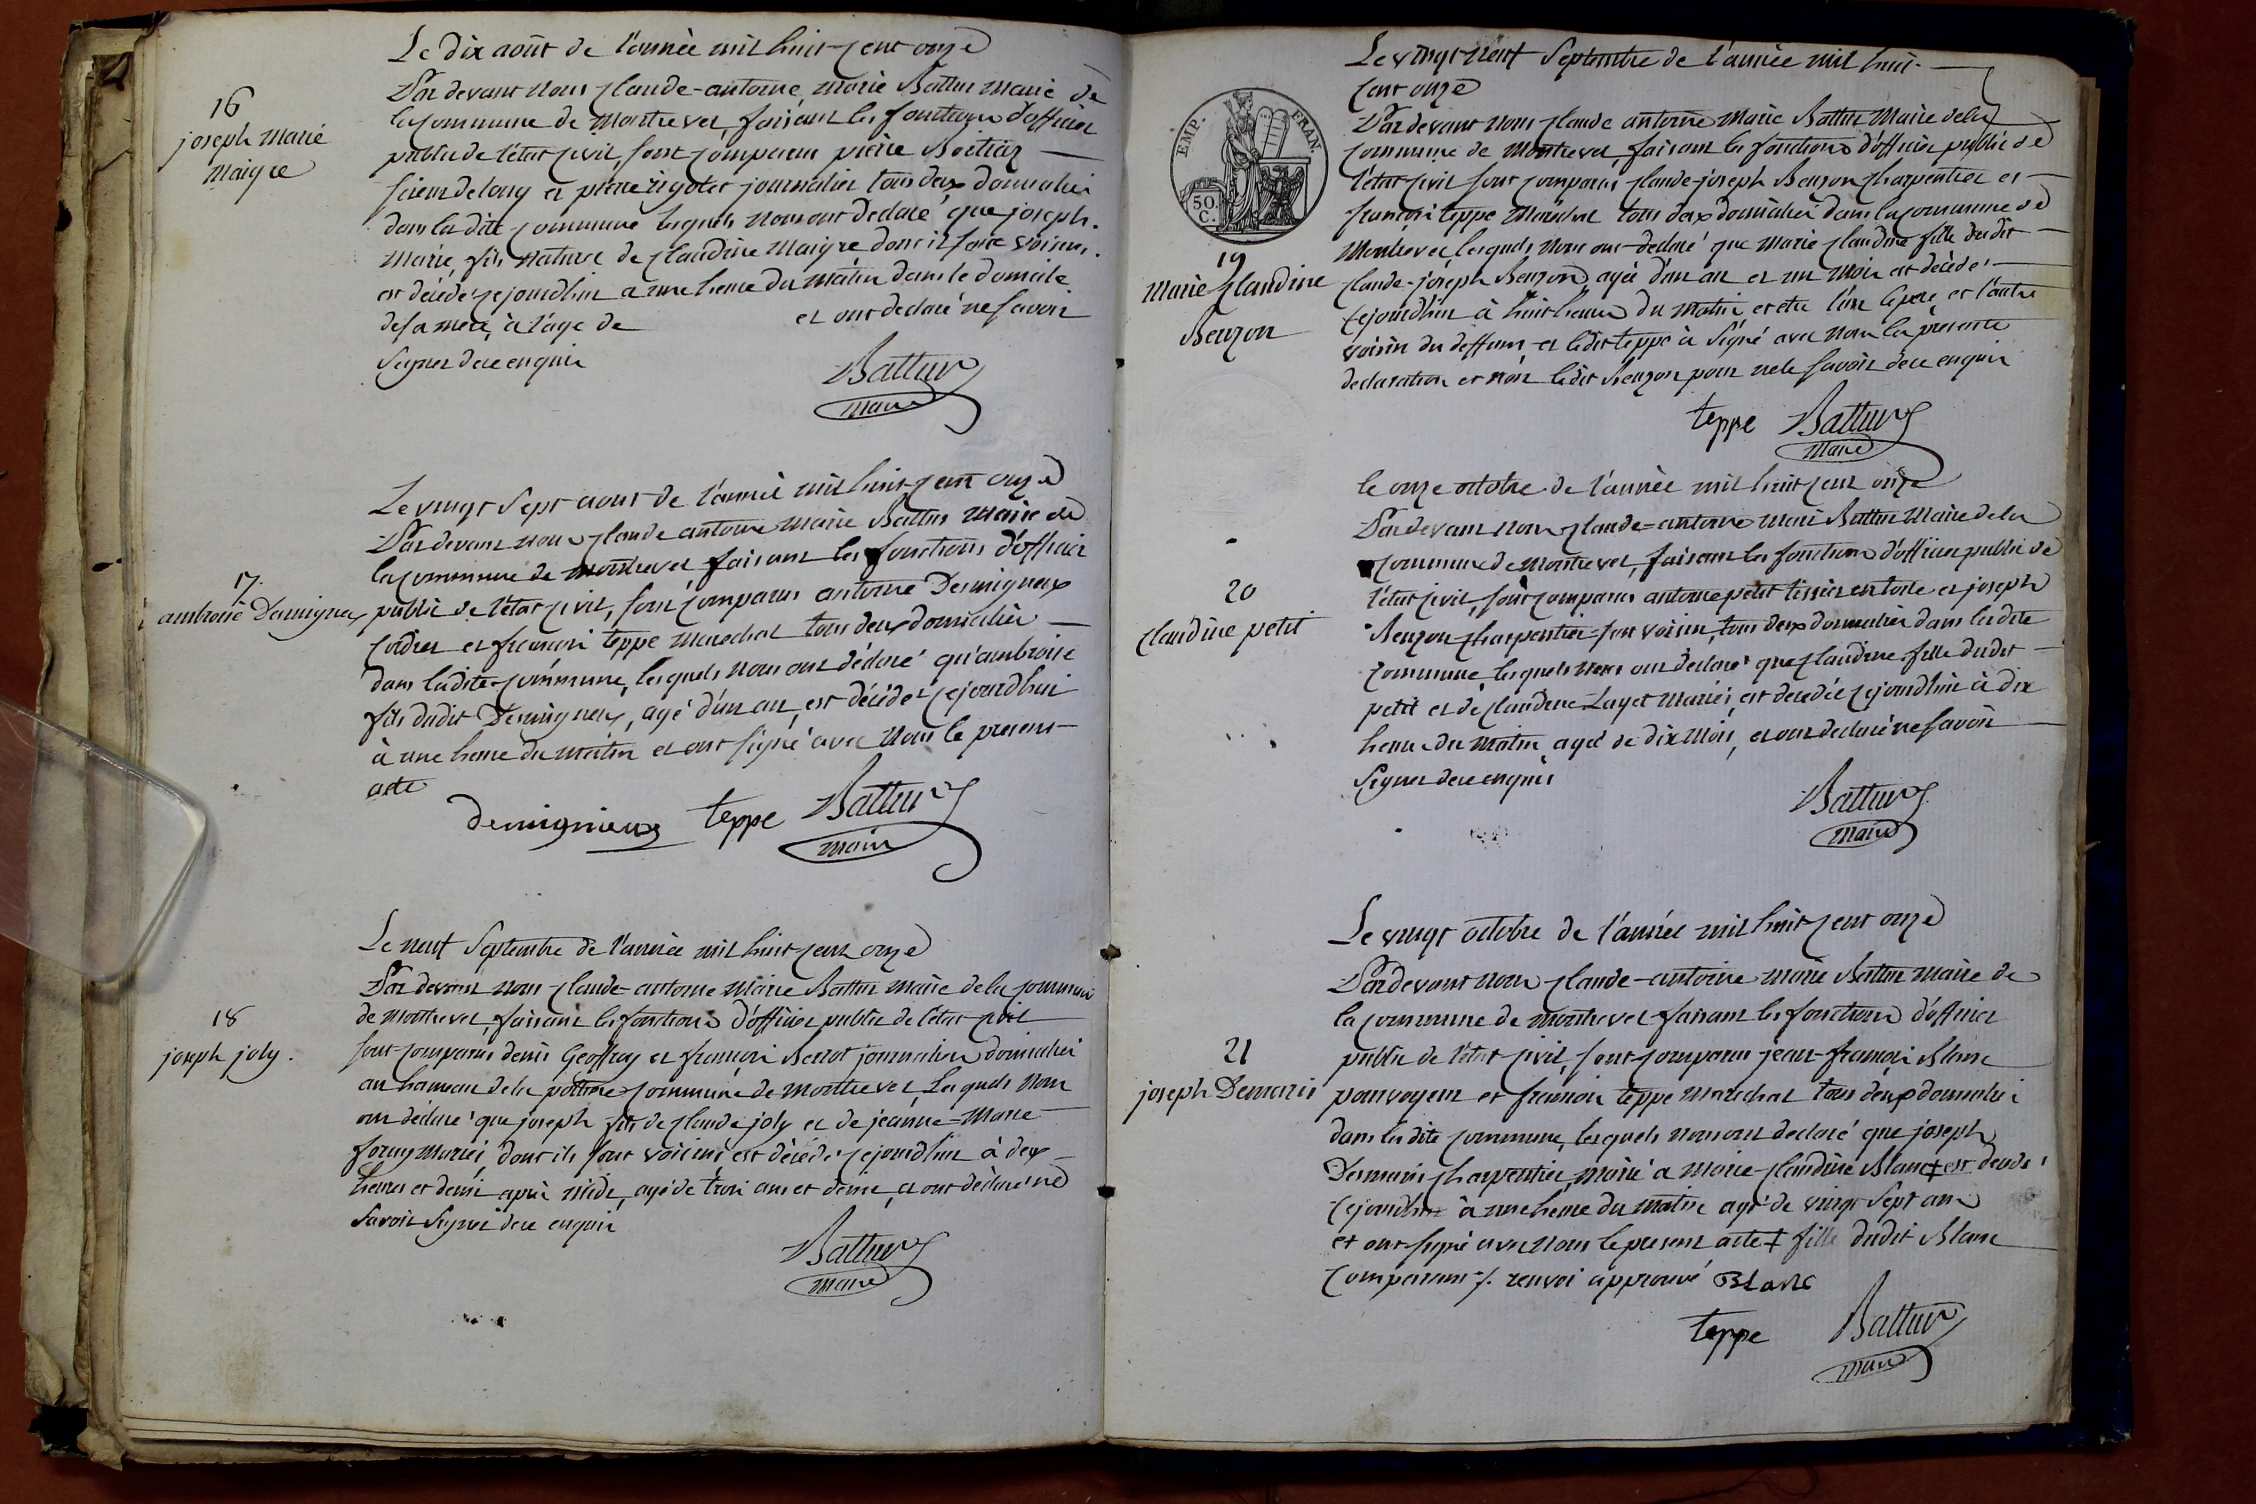 Le dix août de l'année mil huit cent onze
16
joseph marie
maigre
Par devant nous claude-antoine marie Battur maire de
la commune de montrevel, faisant les fonctions d'officier
public de l'état civil, sont comparus pierre
scieur de long et pierre journalier tous deux domiciliés
dans la dite commune lesquels nous ont déclaré que joseph
marie, fils naturel de claudine maigre dont ils sont voisins
est décédé cejourdhui a une heure du matin dans le domicile
de sa mere, à l'age de et ont declaré ne savoir
signer de ce enquis
Battur
maire
Le vingt sept aout de l'année mil huit cent onze
17.
ambroise Desmigneux
Par devant nous claude antoine marie Battur maire de
la commune de montrevel faisant les fonctions d'officier
public de l'état civil, sont comparus antoine Desmigneux
cordier et françois teppe marechal tous deux domiciliés
dans ladite commune, lesquels nous ont déclaré qu'ambroise
fils dudit Desmigneux, agé d'un an, est décédé cejourdhui
à une heure du matin et ont signé avec nous le present
acte
demignieux teppe Battur
maire
Le neuf Septembre de l'année mil huit cent onze
18
joseph joly.
Par devant nous claude-antoine marie Battur maire de la commune
de montrevel, faisant les fonctions d'officier public de l'état civil
sont comparus denis Geoffray et françois journaliers domiciliés
au hameau de la commune de montrevel, Lesquels nous
ont déclaré que joseph fils de claude joly et de jeanne-Marie
mariés, dont ils sont voisins est décédé cejourdhui à deux
heures et demi après midi, agé de trois ans et demie, et ont déclaré ne
savoir signer de ce enquis
Battur
maire
EMP. FRAN.
50.
C.
Le vingt neuf Septembre de l'année mil huit
cent onze
19
marie claudine
Beuzon
Par devant nous claude antoine Marie Battur Maire de la
commune de montrevel, faisant les fonctions d'officier public de
l'état civil sont comparus claude-joseph Beuzon charpentier et
françois teppe marechal tous deux domiciliés dans la commune de
montrevel, lesquels nous ont déclaré que marie claudine fille dudit
claude-joseph Beuzon, agée d'un an et un mois est décédé
cejourdhui à huit heures du matin, et être l'un le pere, et l'autre
voisin du deffunt et ledit teppe à signé avec nous la présente
declaration et non ledit Beuzon pour ne le savoir de ce enquis
teppe Battur
Maire
le onze octobre de l'année mil huit cent onze
20
claudine petit
Par devant nous claude-antoine Marie Battur Maire de la
commune de montrevel, faisant les fonctions d'officier public de
l'état civil, sont comparus antoine petit tissier en toile et joseph
Beuzon charpentier son voisin, tous deux domiciliés dans ladite
commune, lesquels nous ont déclaré que claudine fille dudit
petit et de claudine mariés, est decedée cejourdhui à dix
heure du matin agée de dix mois, et ont declaré ne savoir
signer de ce enquis
Battur
Maire
Le vingt octobre de l'année mil huit cent onze
21
joseph Demaris
Par devant nous claude-antoine marie Battur maire de
la commune de montrevel faisant les fonctions d'officier
public de l'état civil, sont comparus jean-françois Blanc
pourvoyeur et françois teppe marechal tous deux domiciliés
dans la dite commune, lesquels nous ont declaré que joseph
Desmaris charpentier, marié a marie-claudine Blanc ‡ est décédé
cejourdhui à une heure du matin agé de vingt sept ans
et ont signé avec nous le present acte ‡ fille dudit Blanc
comparant /. renvoi approuvé Blanc
teppe Battur
maire